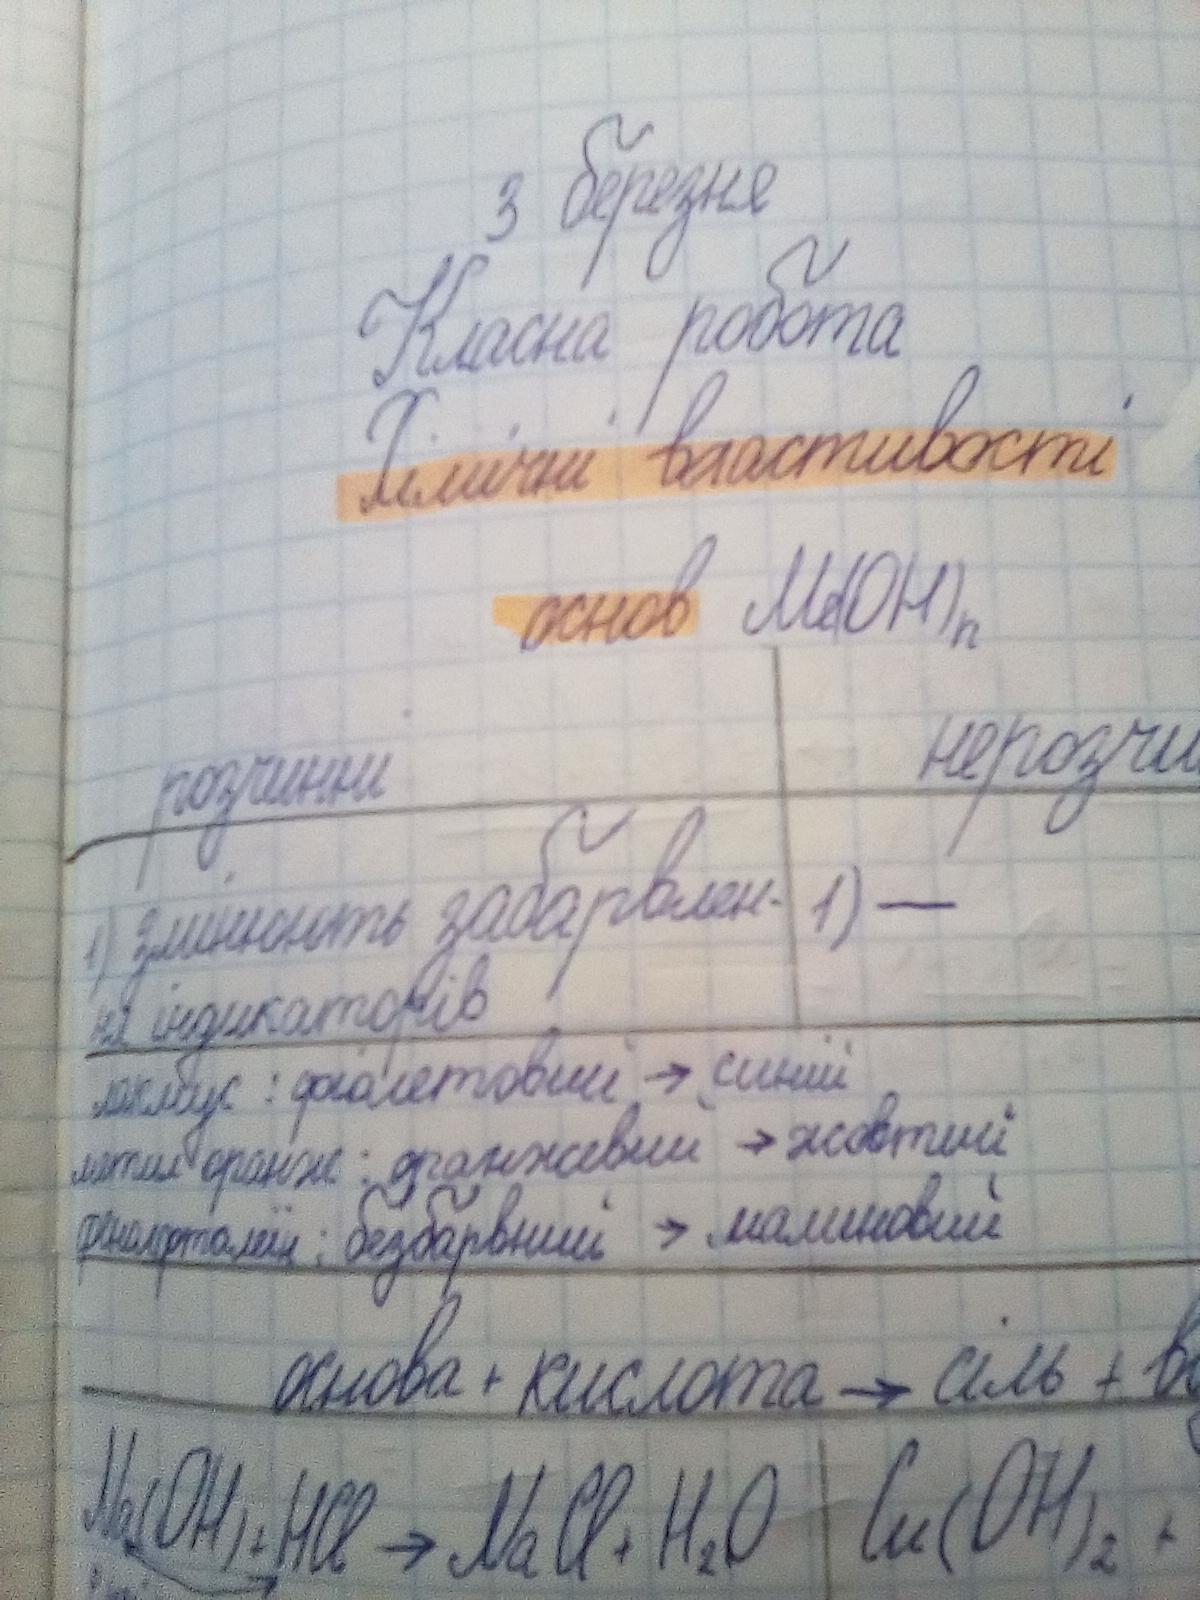 3 березня
Класна робота
Хімічні властивості
основ Me(OH)n
розчинні нерозчи
1) змінюють забарвлен- 1) —
ня індикаторів
лакмус: фіолетовий → синій
метил оранж: оранжевий → жовтий
фенолфталеїн: безбарвний → малиновий
основа + кислота → сіль + во
Na(OH) + HCl → NaCl + H₂O Cu(OH)₂ +